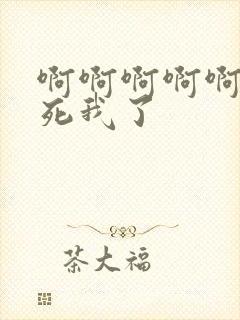 啊啊啊啊啊
死我了
茶大福